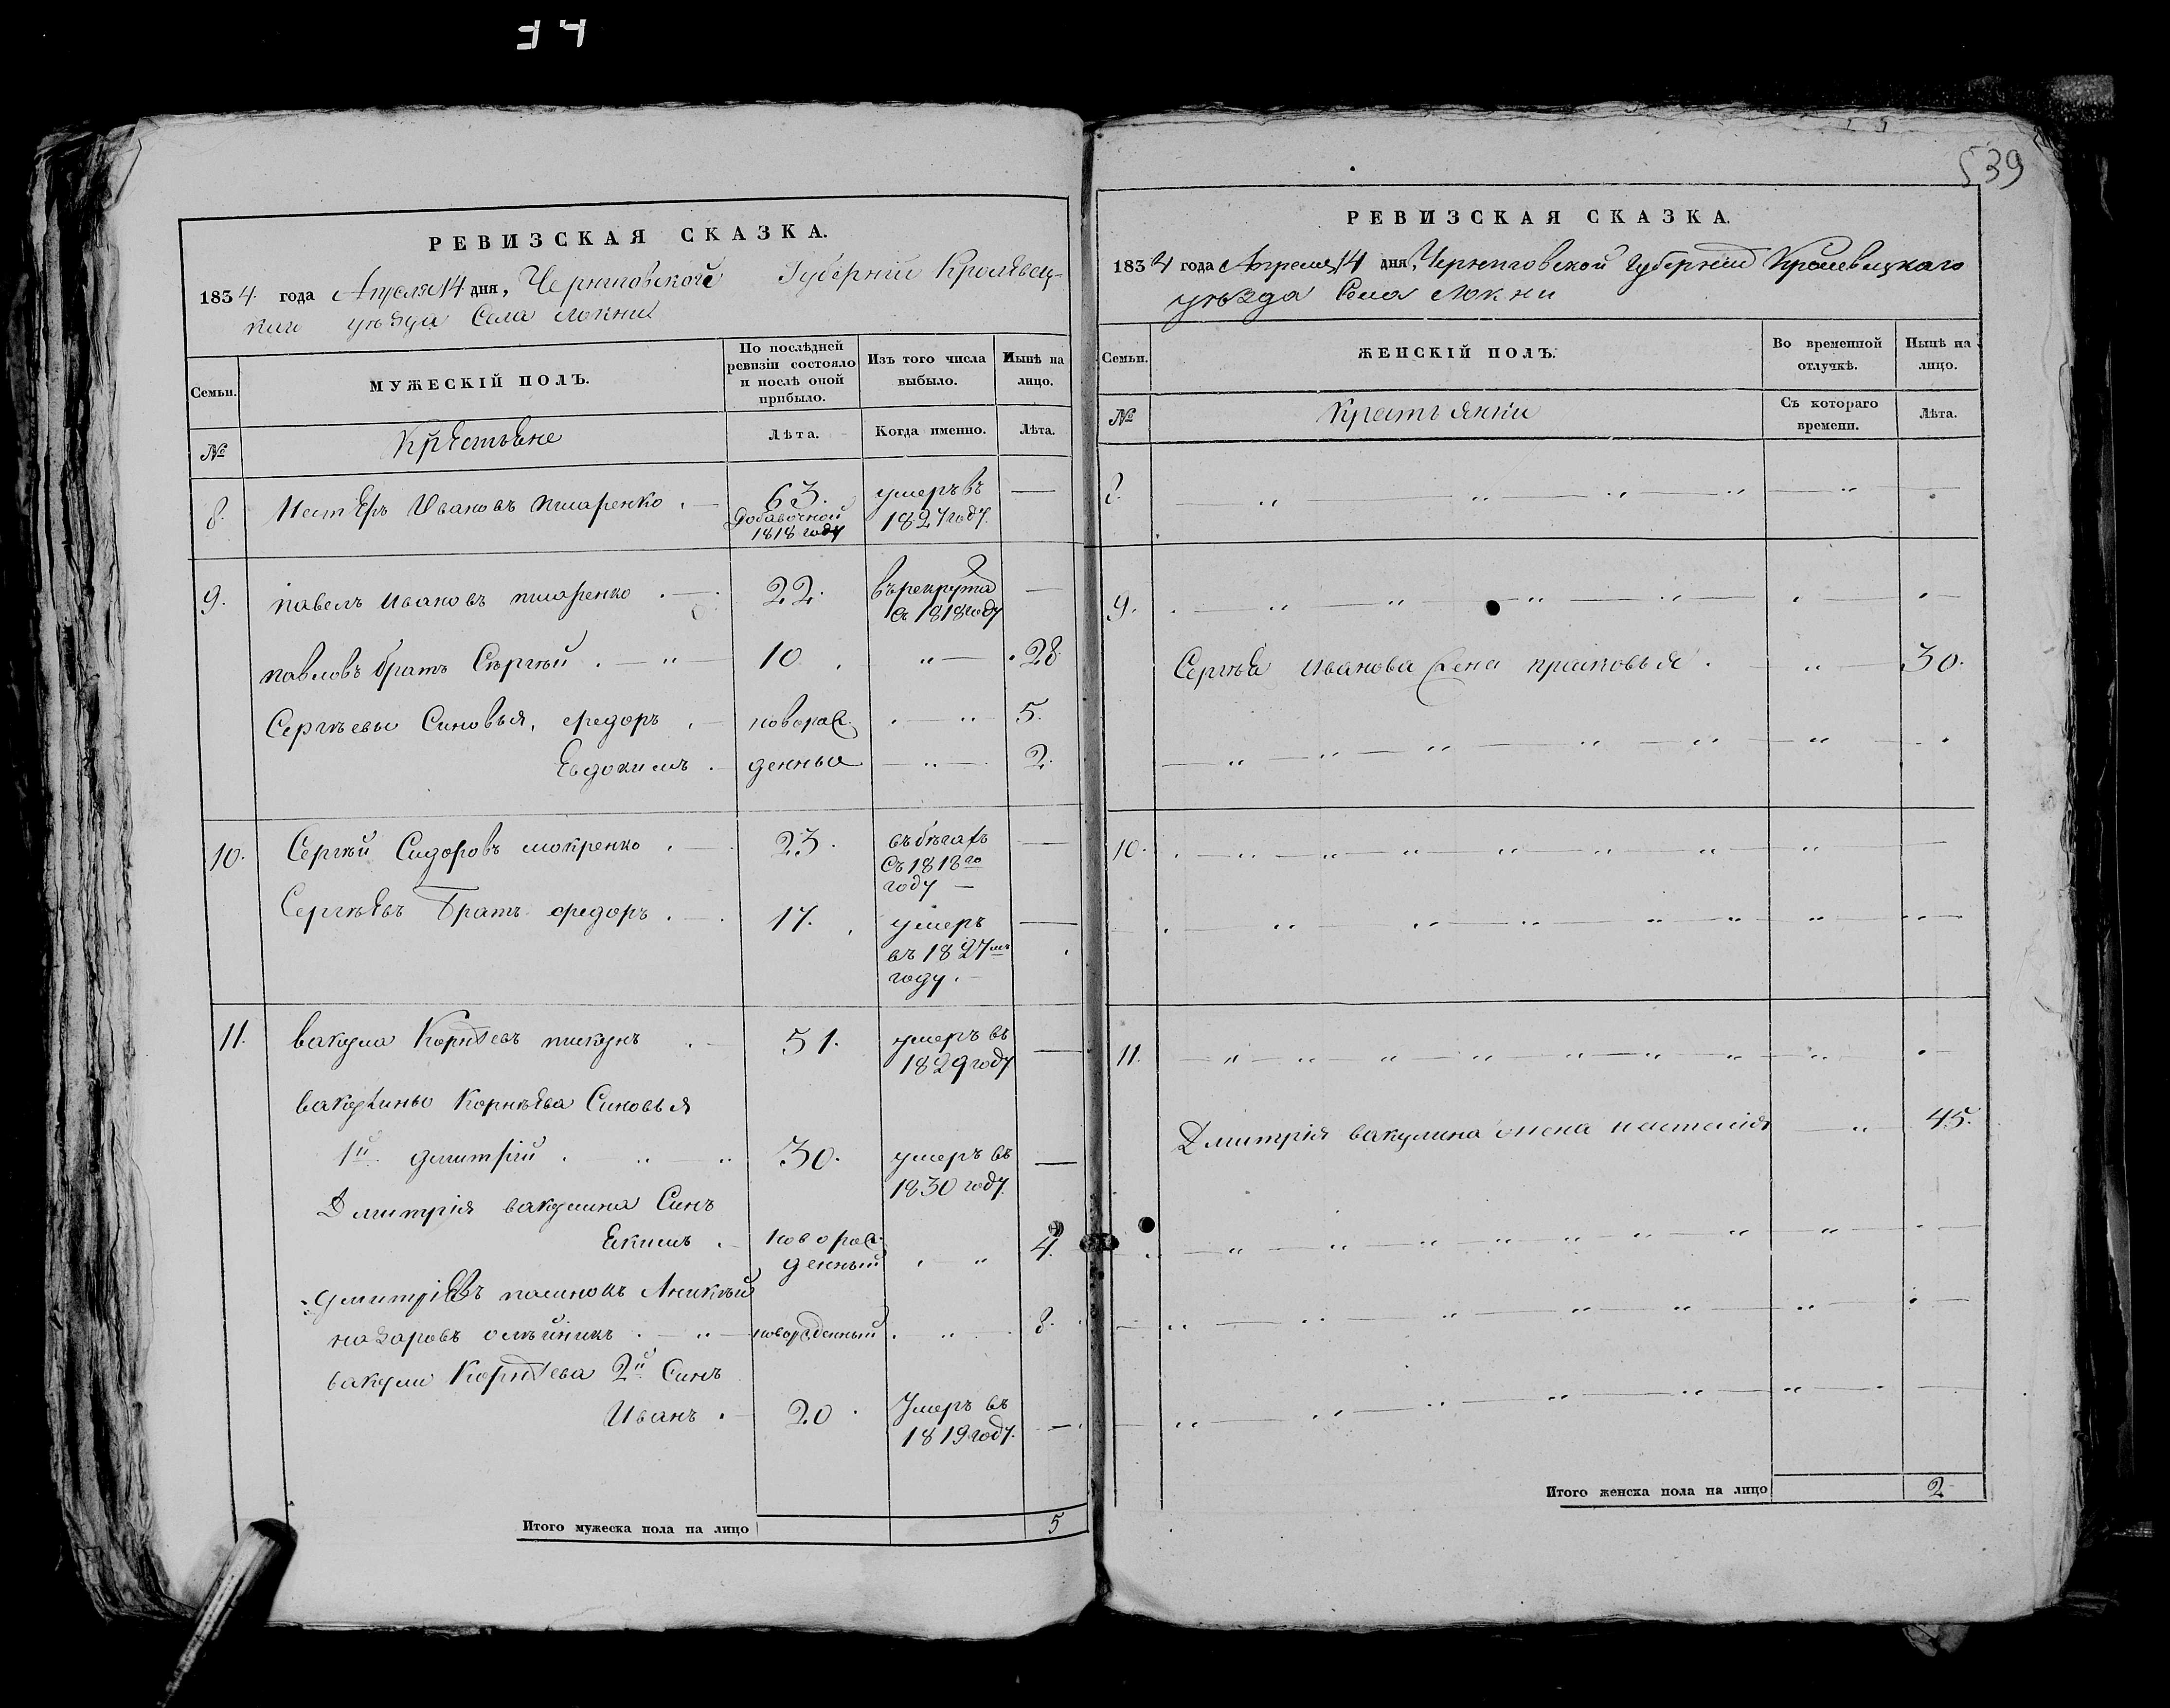 34
РЕВИЗСКАЯ СКАЗКА.
1834. года Апреля 14 дня, Черниговской Губернии Кролевец-
каго уѣзда Села Локни
Семьи.
МУЖЕСКІЙ ПОЛЪ.
По послѣдней ревизіи состояло и послѣ оной прибыло.
Изъ того числа выбыло.
Нынѣ на лицо.
№
Крестьяне
Лѣта.
Когда именно.
Лѣта.
8. Нестеръ Ивановъ 63. умеръ въ —
добавочной 1827 году.
1818 году
9. павелъ Ивановъ 22. въ рекрута —
1818 году
павловъ братъ Сергѣй 10 28
Сергѣевы Синовья, федоръ новорож 5.
Евдокимъ денные 2.
10. Сергѣй Сидоровъ мокренко 23. въ бѣгахъ —
Съ 1818го
году —
Сергѣевъ Братъ федоръ 17. умеръ —
въ 1827мъ
году.
11. вакула Корнѣевъ 51. умеръ въ —
1829 году
вакулины Корнѣева Синовья
1й дмитрій 30. умеръ въ —
1830 году.
Дмитрія вакулина Синъ
Екимъ новорож 4.
денный
дмитріевъ пасинокъ Аникѣй
назаровъ олѣйникъ новорожденный 8.
вакули Корнѣева 2й Синъ
Иванъ 20 Умеръ въ —
1819 году.
Итого мужеска пола на лицо 5
539
РЕВИЗСКАЯ СКАЗКА.
1834 года Апреля 14 дня, Черниговской губерніи Кролевецкаго
уѣзда Села Локни
Семьи.
ЖЕНСКІЙ ПОЛЪ.
Во временной отлучкѣ.
Нынѣ на лицо.
№
Крестьянки
Съ котораго времени.
Лѣта.
8.
9.
Сергѣя Иванова жена прасковья 30.
10.
11.
Дмитрія вакулина жена настасія 45.
Итого женска пола на лицо 2